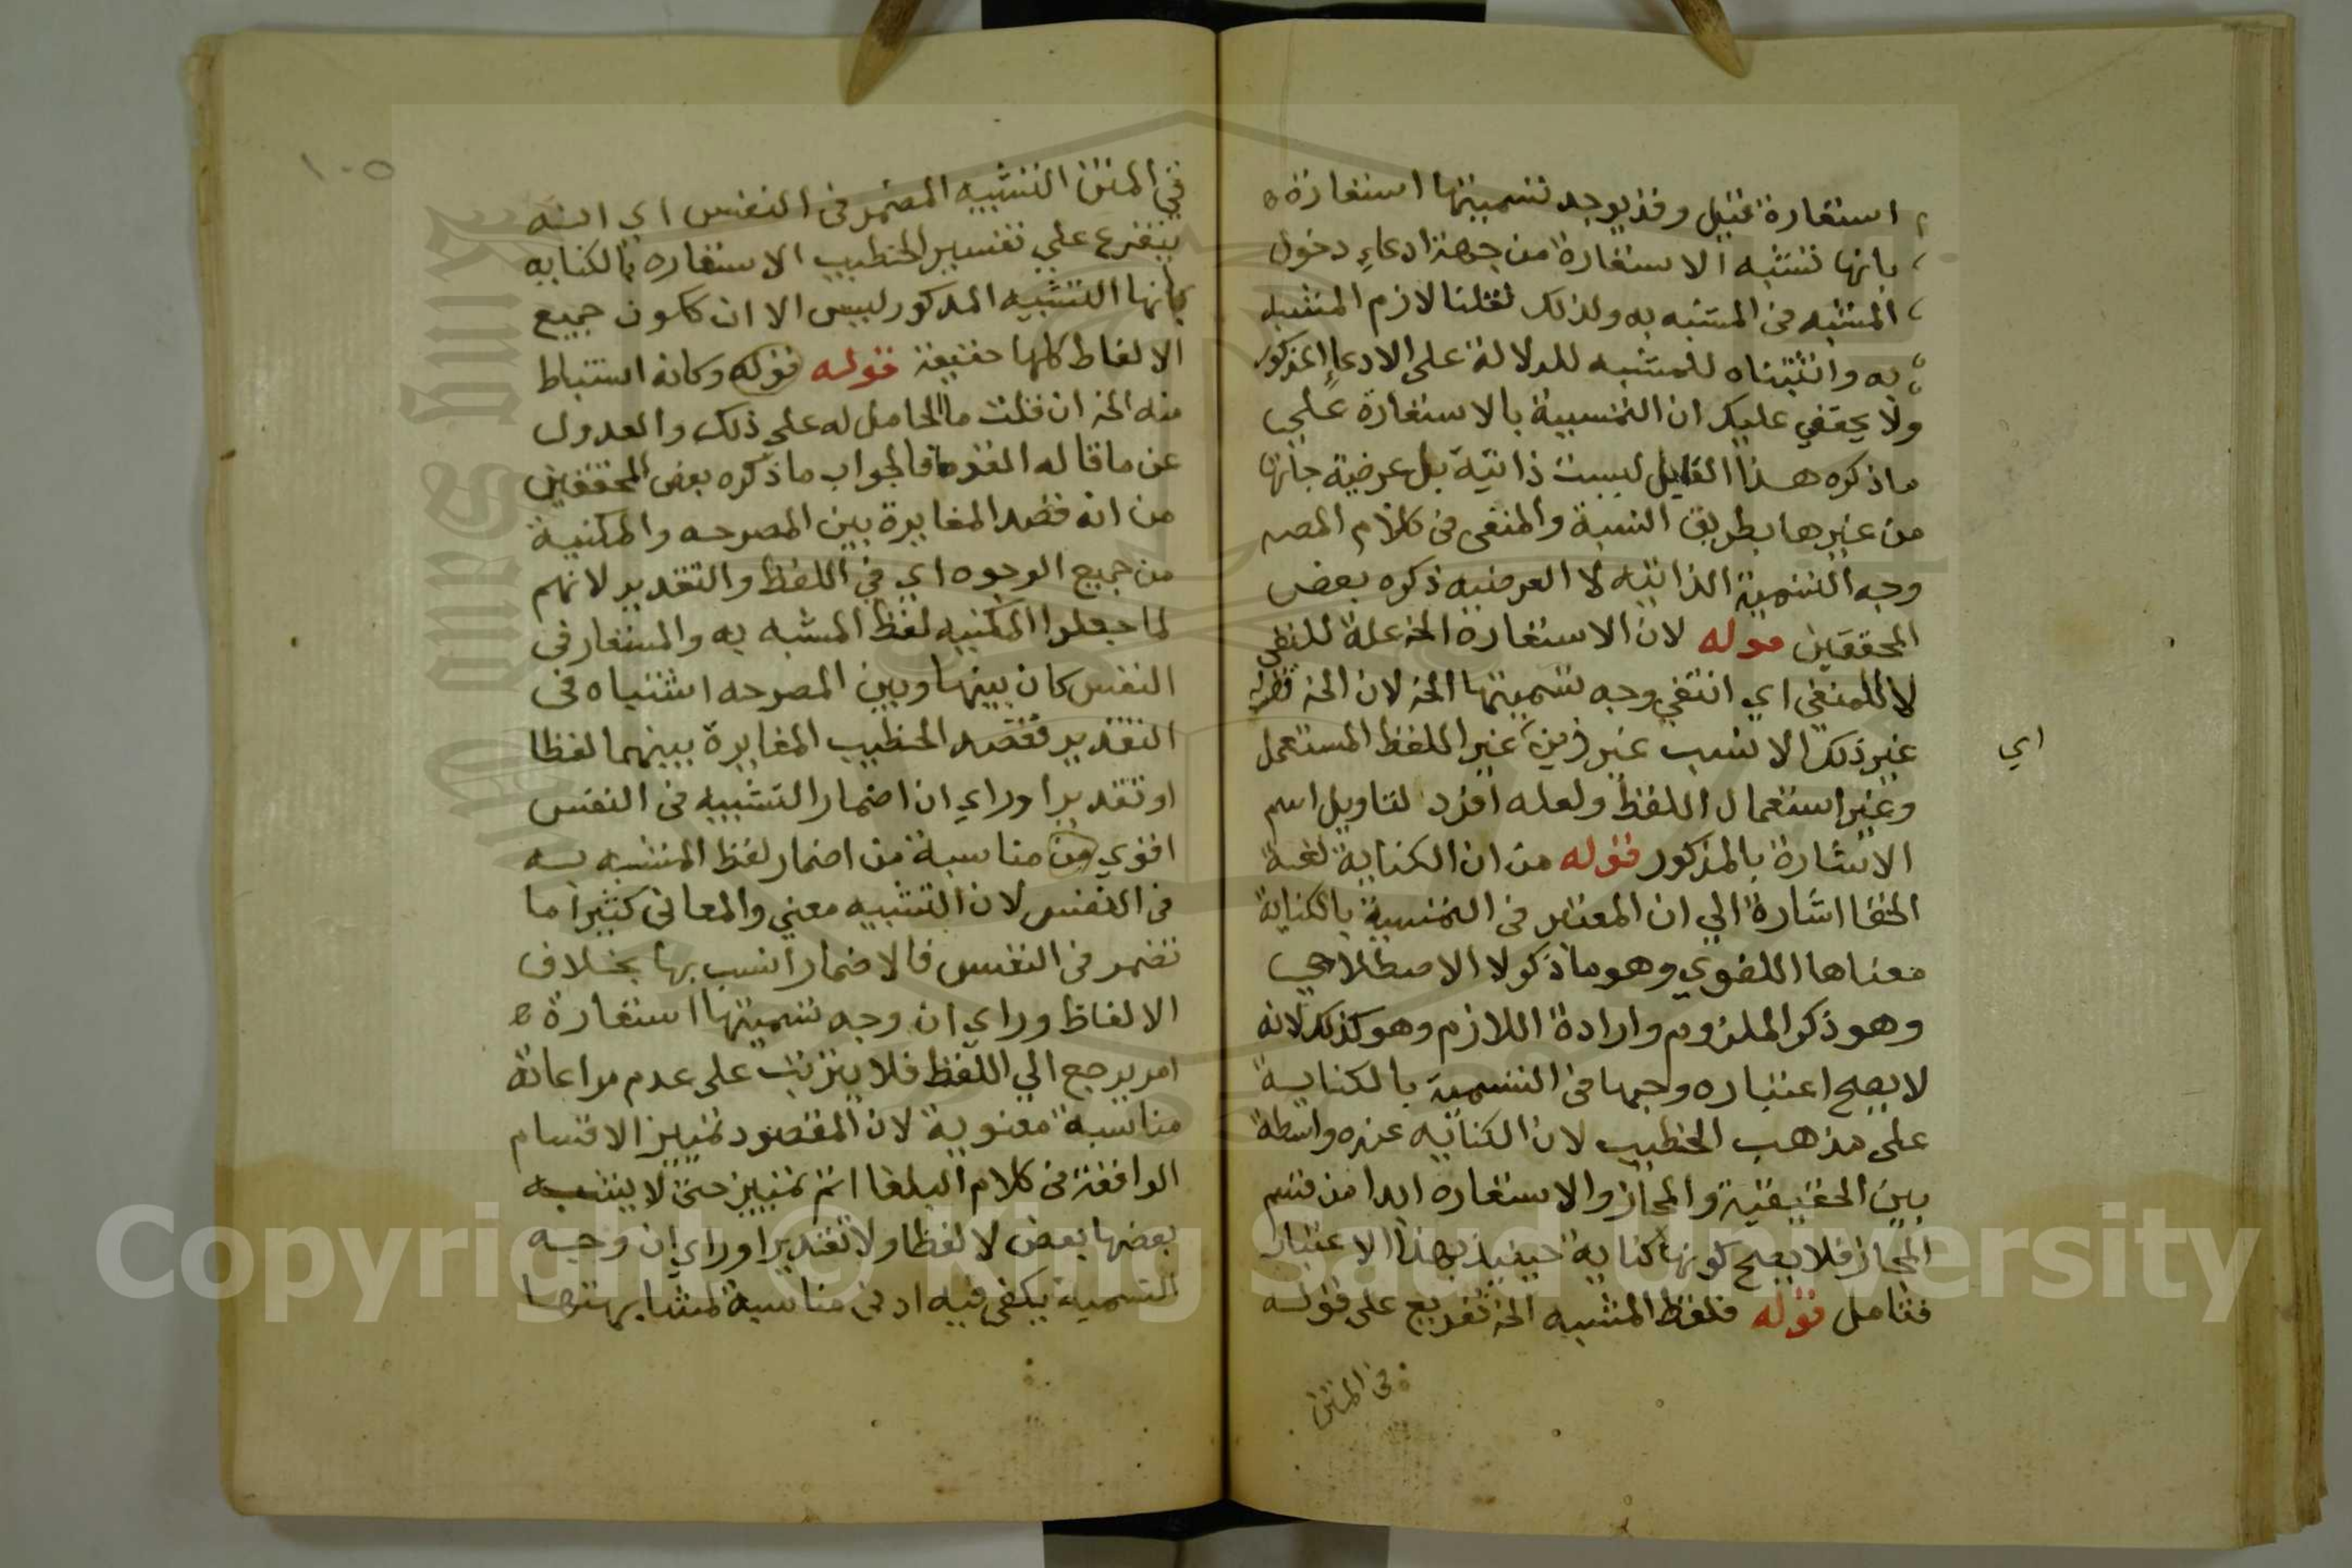 استعارة قيل وقد يوجه تسميتها استعارة
بانها تشبه الاستعارة من جهة ادعاء دخول
المشبه في المشبه به ولذلك نقلنا لازم المشبه
به واثبتناه للمشبه للدلالة على الادعاء المذكور
ولا يخفي عليك ان التسمية بالاستعارة علي
ما ذكره هذا القايل ليست ذاتية بل عرضية جاتها
من غيرها بطريق النسبة والمنفى فى كلام المصه
وجه التسمية الذاتيه لا العرضيه ذكره بعض
المحققين قوله لان الاستعارة الخ علة للنفي
لا للمنفي اي انتفي وجه تسميتها الخ لان الخ قوله
غير ذلك الانسب غير ذين غير اللفظ المستعمل
اي
وغير استعمال اللفظ ولعله افرد لتاويل اسم
الاشارة بالمذكور قوله من ان الكناية لغة
الخفا اشارة الي ان المعتبر فى التسمية بالكناية
معناها اللغوي وهو ما ذكر لا الاصطلاحي
وهو ذكر الملزوم وارادة اللازم وهو كذلك لانه
لا يصح اعتباره وجها فى التسمية بالكناية
على مذهب الخطيب لان الكنايه عنده واسطة
بين الحقيقية والمجاز والاستعاره ابدا من قسم
المجاز فلا يصح كونها كناية حينيذ بهذا الاعتبار
فتامل قوله فلفظ المشبه الخ تفريع على قوله
في المتن
١٠٥
في المتن التشبيه المضمر فى النفس اي انه
يتفرع علي تفسير الخطيب الاستعاره بالكنايه
بانها التشبيه المذكور ليس الا ان كاون جميع
الالفاظ كلها حقيقة قوله قوله وكانه استنباط
منه الخ ان قلت ما الحامل له علي ذلك والعدول
عن ما قاله القوم فالجواب ما ذكره بعض المحققين
من انه قصد المغايرة بين المصرحه والمكنية
من جميع الوجوه اي في اللفظ والتقدير لانهم
لما جعلوا المكنيه لفظ المشبه به والمستعار فى
النفس كان بينها وبين المصرحه اشتباه فى
التقدير فقصد الخطيب المغايرة بينهما لفظا
او تقديرا وراي ان اضمار التشبيه فى النفس
اقوي من مناسبة من اضمار لفظ المشبه به
فى النفس لان التشبيه معني والمعانى كثيرا ما
تضمر فى النفس فالاضمار انسب بها بخلاف
الالفاظ وراي ان وجه تسميتها استعارة
امر يرجع الي اللفظ فلا يترتب على عدم مراعاتة
مناسبة معنوية لان المقصود تمييز الاقسام
الواقعة فى كلام البلغا اتم تمييز حتى لا يشبه
بعضها بعض لا لفظا ولا تقديرا وراي ان وجه
التسمية يكفى فيه ادنى مناسبة لمشابهتها
Copyright © King Saud University